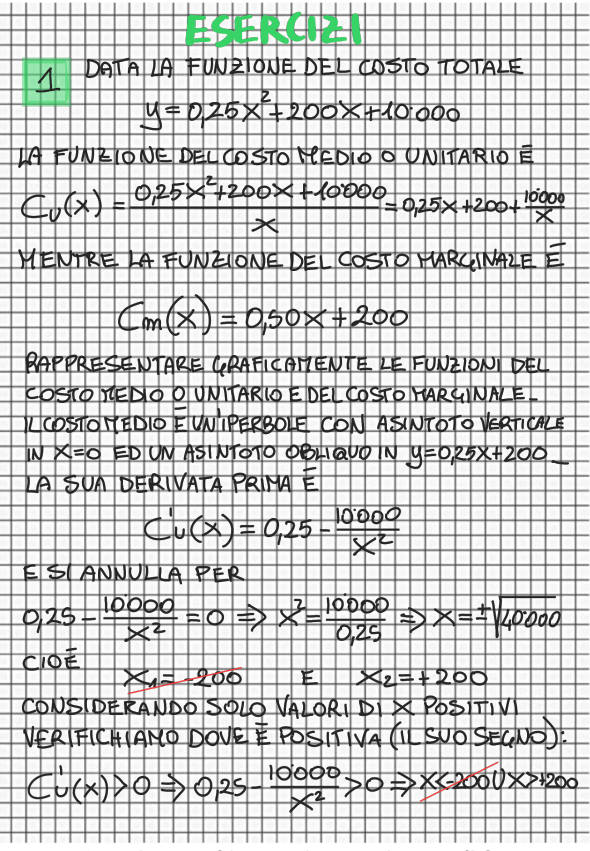 ESERCIZI
1 DATA LA FUNZIONE DEL COSTO TOTALE
y=0,25x²+200x+10'000
LA FUNZIONE DEL COSTO MEDIO O UNITARIO È
Cu(x) = (0,25x²+200x+10'000)/x = 0,25x+200+10'000/x
MENTRE LA FUNZIONE DEL COSTO MARGINALE È
Cm(x) = 0,50x+200
RAPPRESENTARE GRAFICAMENTE LE FUNZIONI DEL
COSTO MEDIO O UNITARIO E DEL COSTO MARGINALE_
IL COSTO MEDIO È UN'IPERBOLE CON ASINTOTO VERTICALE
IN X=0 ED UN ASINTOTO OBLIQUO IN y=0,25x+200_
LA SUA DERIVATA PRIMA È
C'u(x) = 0,25 - 10'000/x²
E SI ANNULLA PER
0,25 - 10'000/x² = 0 => x² = 10'000/0,25 => x = ±√40'000
CIOÈ
x₁ = -200 E x₂ = +200
CONSIDERANDO SOLO VALORI DI X POSITIVI
VERIFICHIAMO DOVE È POSITIVA (IL SUO SEGNO):
C'u(x) > 0 => 0,25 - 10'000/x² > 0 => x<-200 U x>+200